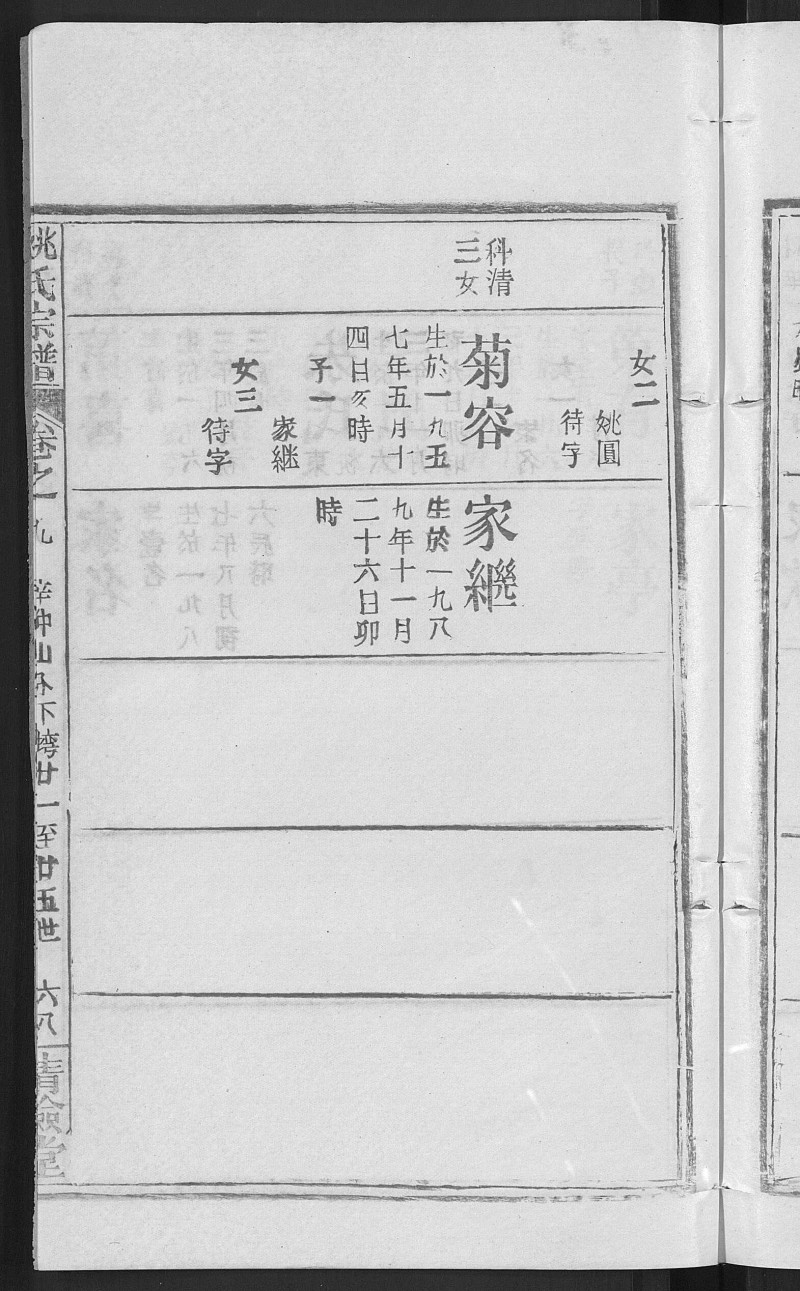 女二
姚圓
待字
科清
三女
菊容
生於一九五
七年五月十
四日亥時
子一
家継
女三
待字
家継
生於一九八
九年十一月
二十六日卯
時
姚氏宗譜
卷之九
梓冲山外下塆廿一至廿五世
六八
清儉堂